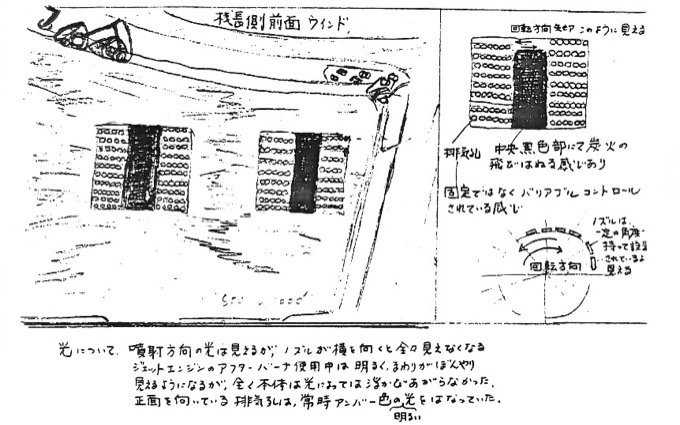 機長側前面ウインド
回転方向矢印 このように見える
排気孔
中央黒色部にて炭火の
飛びはねる感じあり
固定ではなくバリアブル コントロール
されている感じ
ノズルは、
一定の角度
持って設置
されているよ
見える
回転方向
光について、噴射方向の光は見えるが、ノズルが横を向くと全々見えなくなる
ジェットエンジンのアフターバーナ使用中は明るく、まわりがぼんやり
見えるようになるが、全く不体は光によっては浮かびあがらなかった。
正面を向いている排気孔は、常時アンバー色の光をはなっていた。
明るい